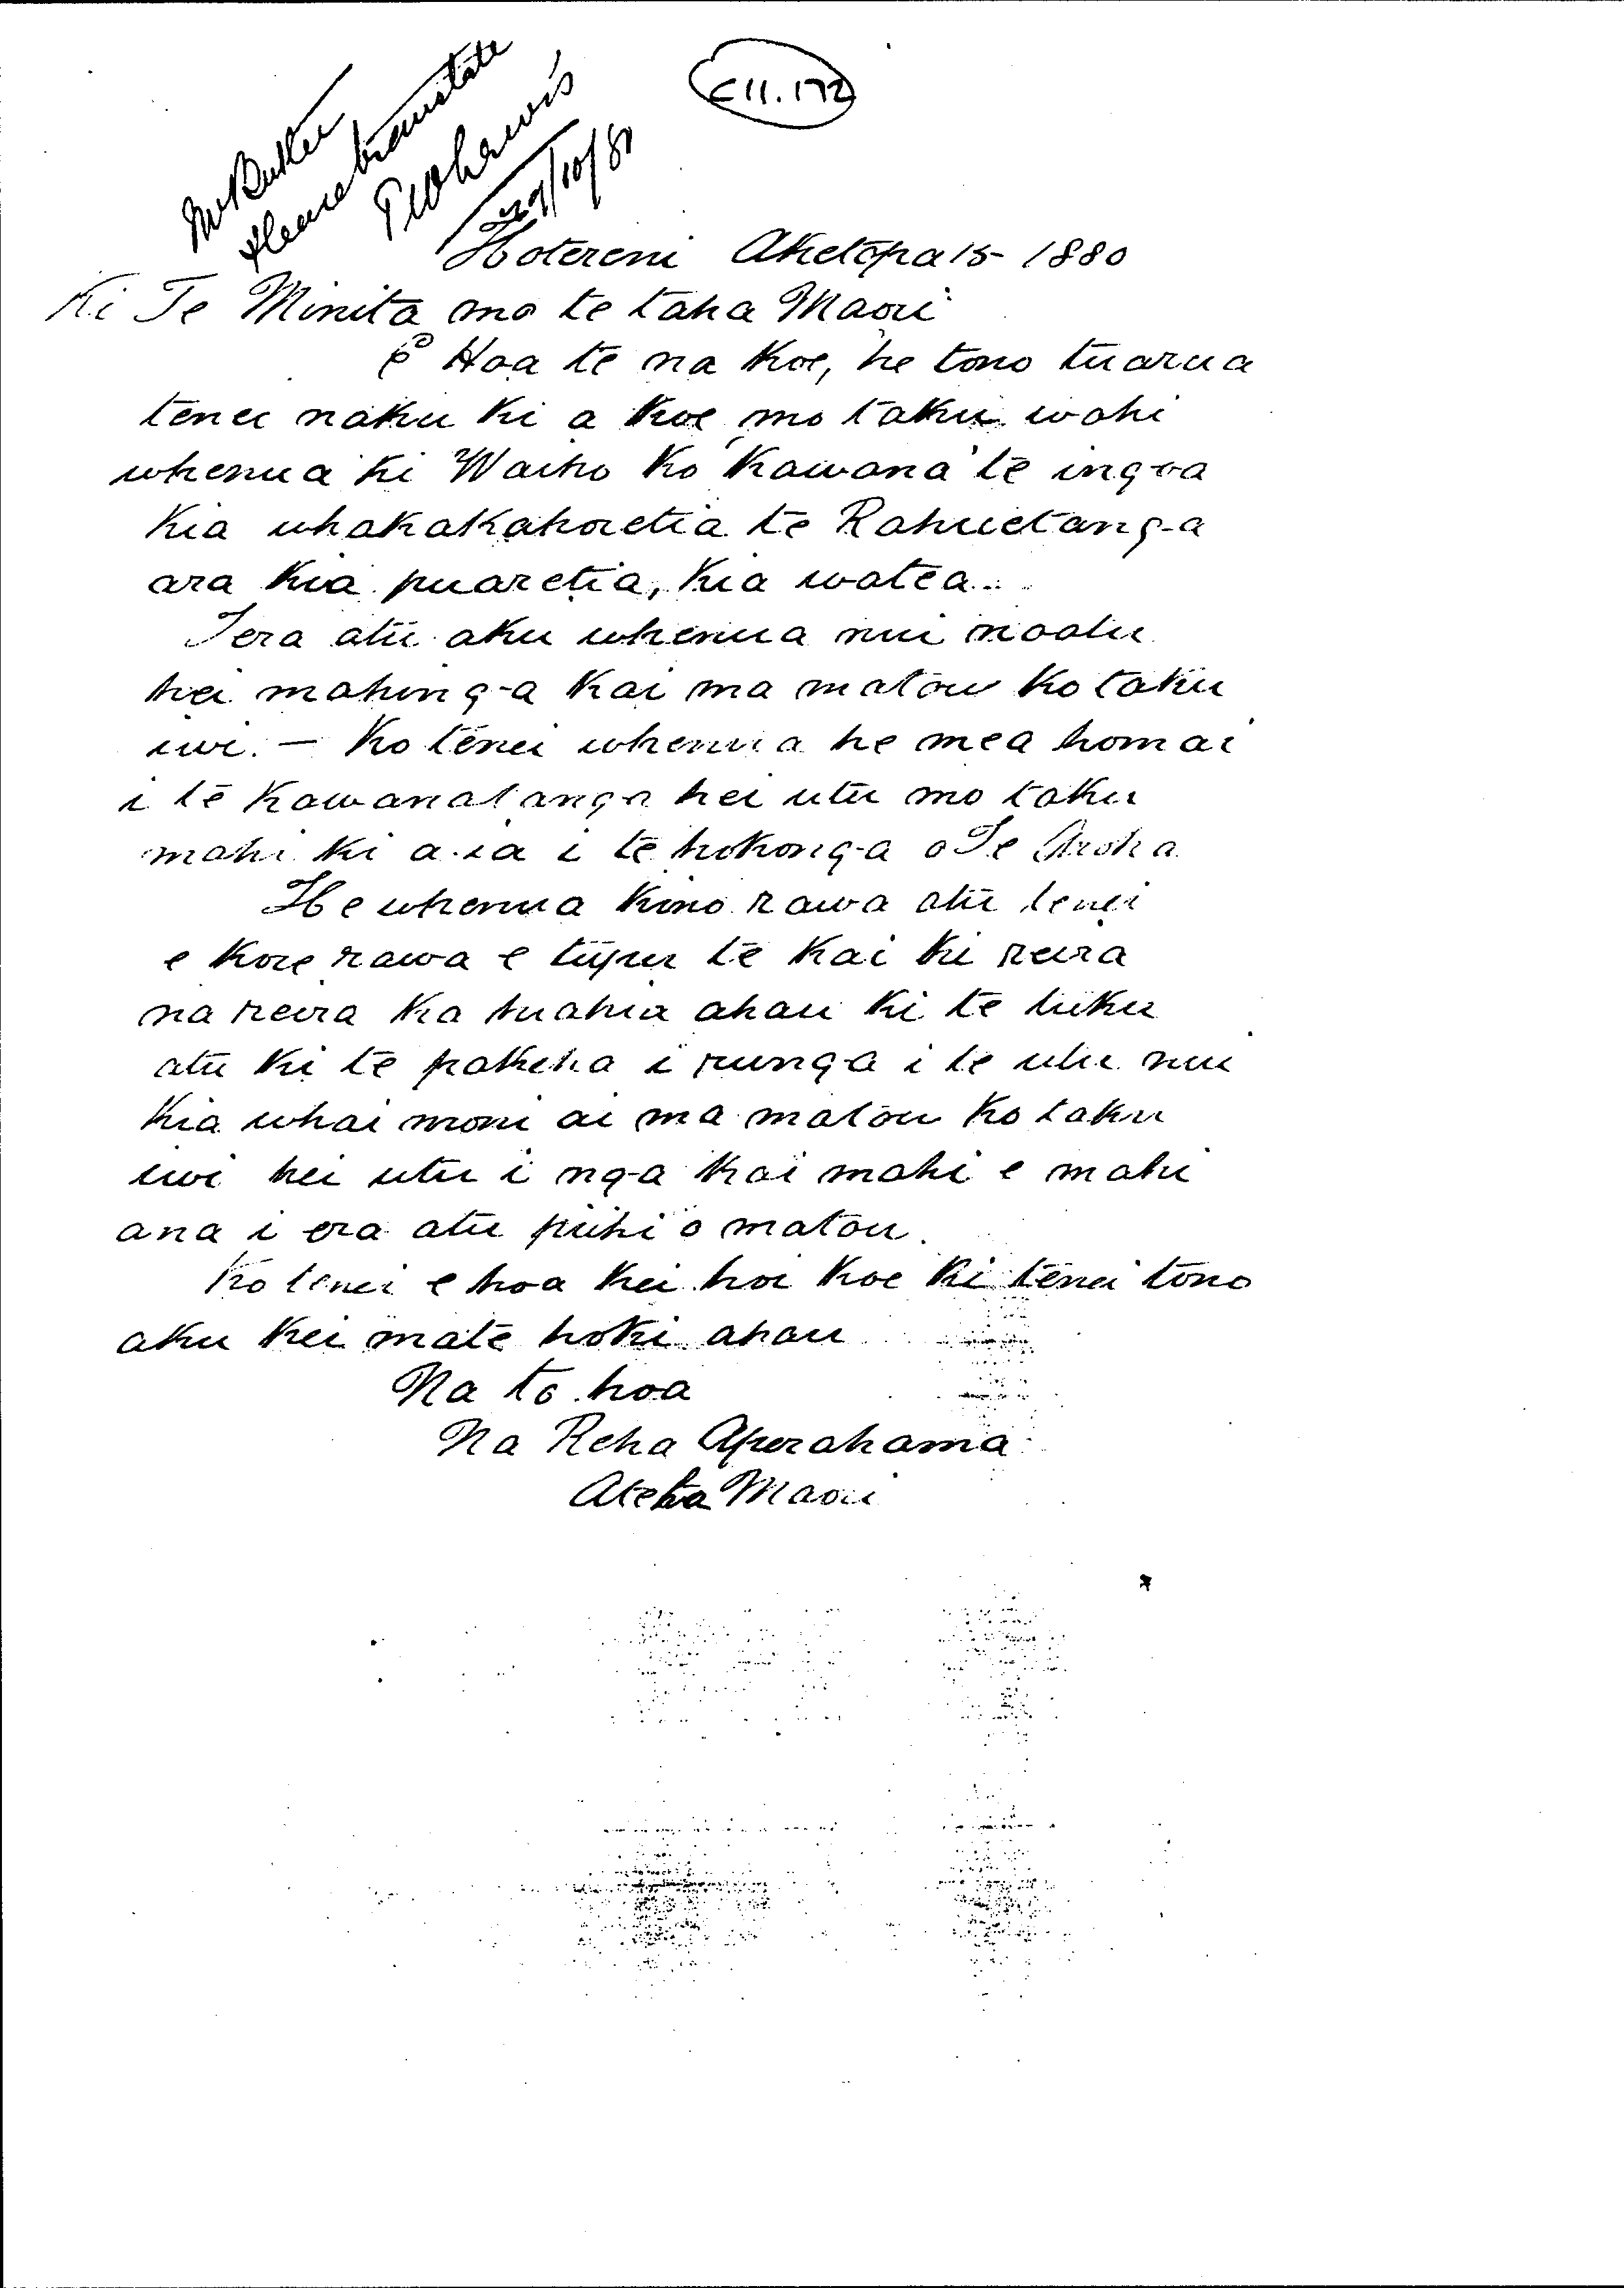 E11.172
Mr Butler
Please translate
29/10/80
Hotereni Aketopa 15 - 1880
Ki Te Minita mo te taha Maori
E Hoa te na koe, he tono tuarua
tenei naku ki a koe mo taku wahi
whenua ki Waiho ko Kawana te ingoa
kia whakakahoretia te Rahuietanga
ara kia puaretia, kia watea..
Tera atu aku whenua nui noatu
hei mahinga kai ma matou ko taku
iwi. — Ko tenei whenua he mea homai
i te Kawanatanga hei utu mo taku
mahi ki a ia i te hokonga o Te Aroha
He whenua kino rawa atu tenei
e kore rawa e tupu te kai ki reira
na reira ka hiahia ahau ki te tuku
atu ki te pakeha i runga i te utu nui
kia whai moni ai ma matou ko taku
iwi hei utu i nga kai mahi e mahi
ana i era atu piihi o matou.
Ko tenei e hoa kei hoi koe ki tenei tono
aku kei mate hoki ahau
Na to hoa
Na Reha Aperahama
Ateha Maori